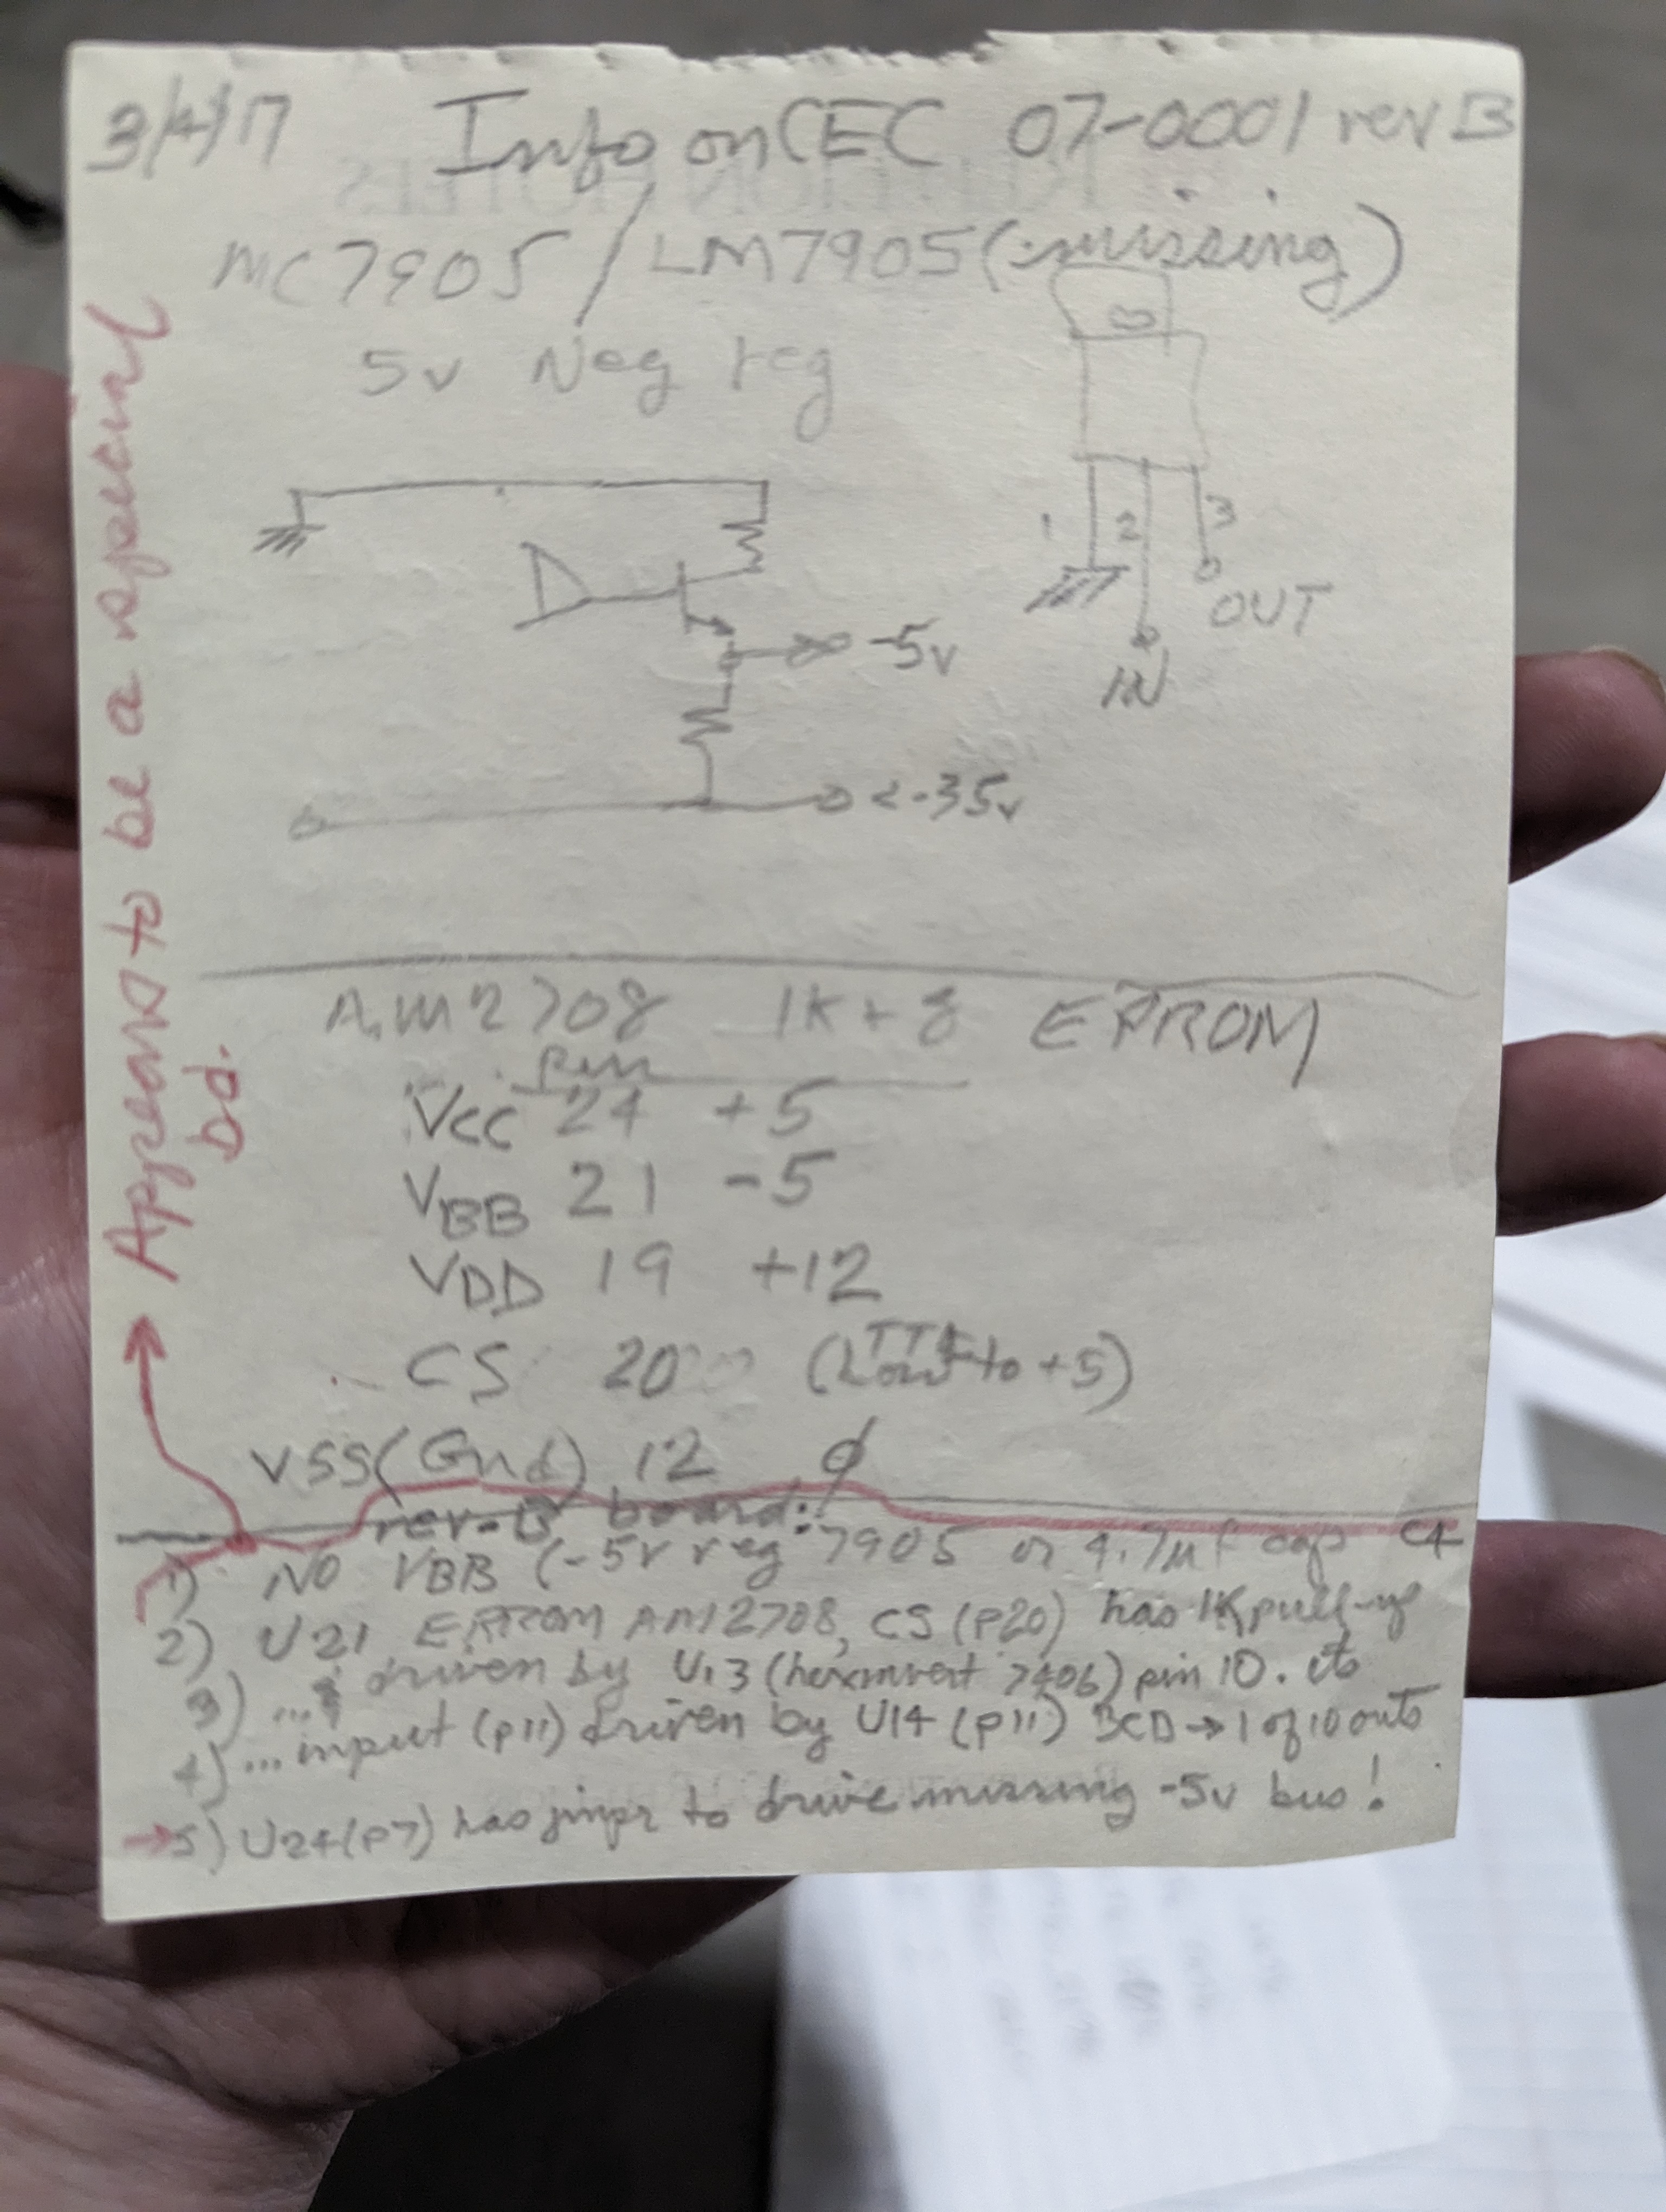 3/4/17 Info on CEC 07-0001 rev B
MC7905 / LM7905 (missing)
5v Neg reg
1 2 3
OUT
IN
-5v
<-35v
AM2708 1K + 8 EPROM
Pin
VCC 24 +5
VBB 21 -5
VDD 19 +12
CS 20 (Low to +5)
VSS (Gnd) 12 ϕ
rev-B board:
1) NO VBB (-5v reg 7905 or 4.7μf cap C4
2) U21 EPROM AM2708, CS (P20) has 1K pull-up
3) ... & driven by U13 (hexinvert 7406) pin 10. its
4) ... input (p11) driven by U14 (p11) BCD → 1 of 10 outs
→5) U24 (P7) has jmpr to drive missing -5v bus!
→ Appears to be a special
bd.